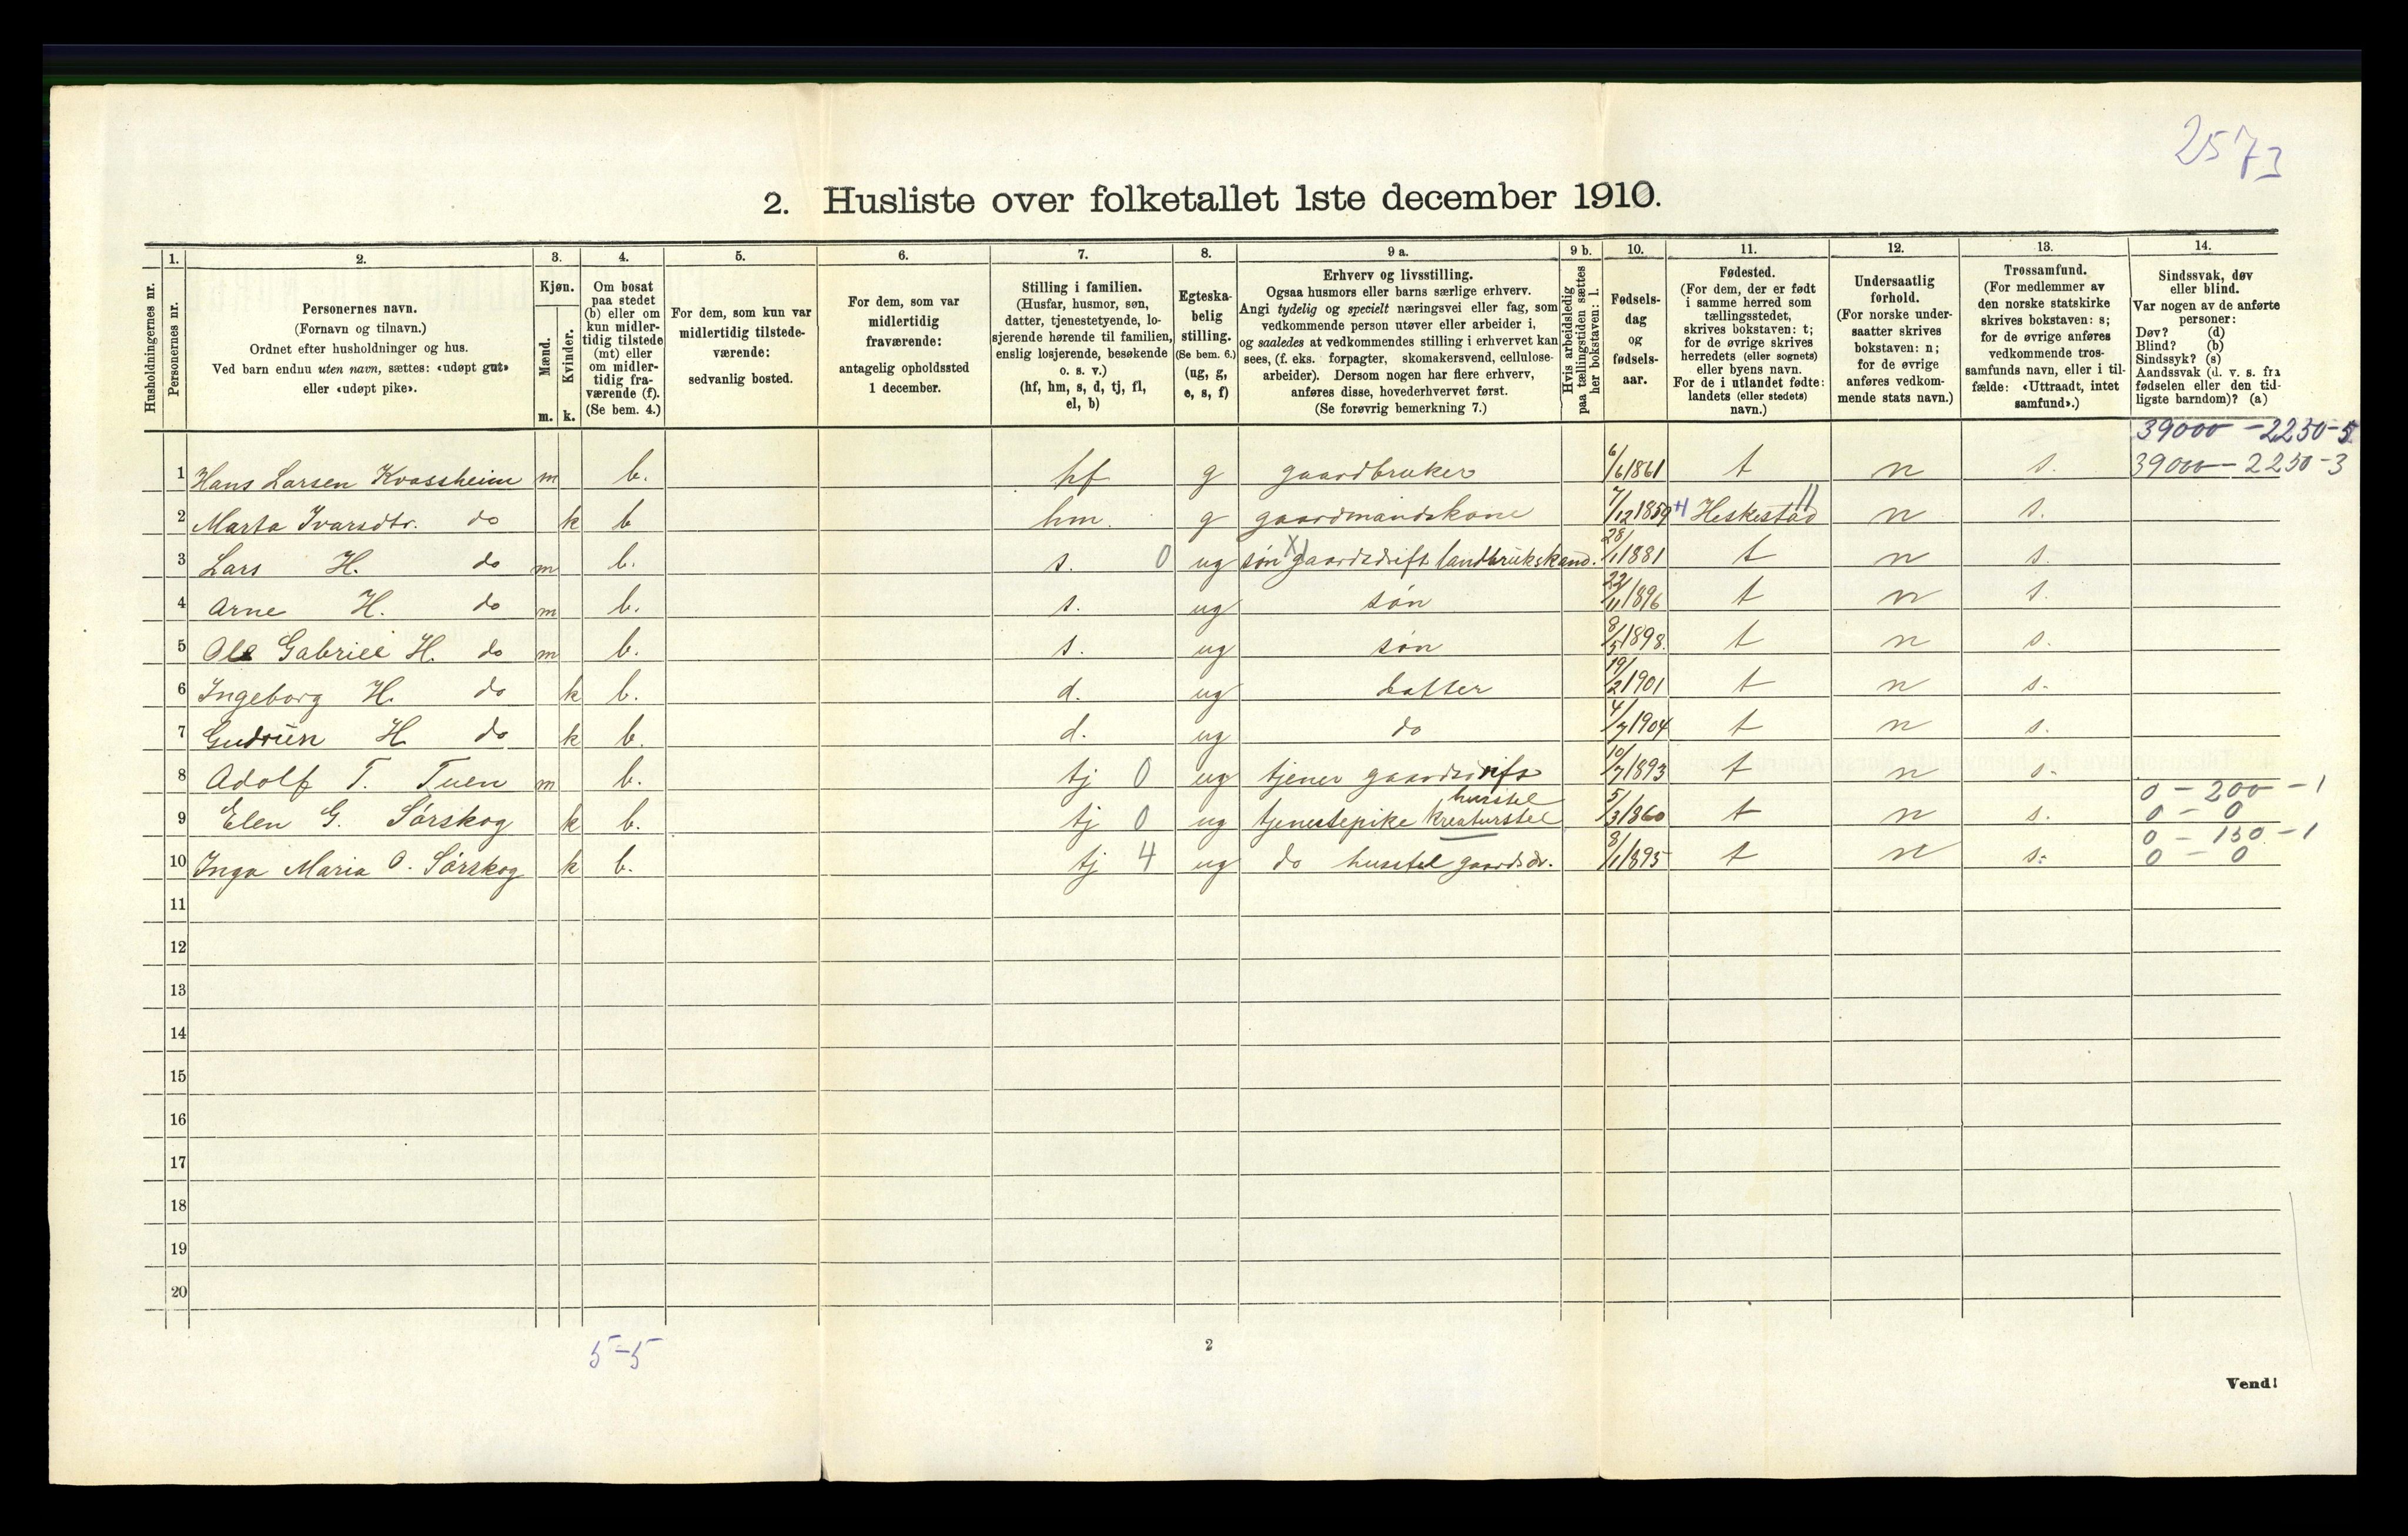 2573
2. Husliste over folketallet 1ste december 1910.
Husholdningernes nr.
1. Personernes nr.
2. Personernes navn.
(Fornavn og tilnavn.)
Ordnet efter husholdninger og hus.
Ved barn endnu uten navn, sættes: «udøpt gut»
eller «udøpt pike».
3. Kjøn.
Mænd. m.
Kvinder. k.
4. Om bosat
paa stedet
(b) eller om
kun midler-
tidig tilstede
(mt) eller
om midler-
tidig fra-
værende (f).
(Se bem. 4.)
5. For dem, som kun var
midlertidig tilstede-
værende:
sedvanlig bosted.
6. For dem, som var
midlertidig
fraværende:
antagelig opholdssted
1 december.
7. Stilling i familien.
(Husfar, husmor, søn,
datter, tjenestetyende, lo-
sjerende hørende til familien,
enslig losjerende, besøkende
o. s. v.)
(hf, hm, s, d, tj, fl,
el, b)
8. Egteska-
belig
stilling.
(Se bem. 6.)
(ug, g,
e, s, f)
9 a. Erhverv og livsstilling.
Ogsaa husmors eller barns særlige erhverv.
Angi tydelig og specielt næringsvei eller fag, som
vedkommende person utøver eller arbeider i,
og saaledes at vedkommendes stilling i erhvervet kan
sees, (f. eks. forpagter, skomakersvend, cellulose-
arbeider). Dersom nogen har flere erhverv,
anføres disse, hovederhvervet først.
(Se forøvrig bemerkning 7.)
9 b. Hvis arbeidsledig
paa tællingstiden sættes
her bokstaven: l.
10. Fødsels-
dag
og
fødsels-
aar.
11. Fødested.
(For dem, der er født
i samme herred som
tællingsstedet,
skrives bokstaven: t;
for de øvrige skrives
herredets (eller sognets)
eller byens navn.
For de i utlandet fødte:
landets (eller stedets)
navn.)
12. Undersaatlig
forhold.
(For norske under-
saatter skrives
bokstaven: n;
for de øvrige
anføres vedkom-
mende stats navn.)
13. Trossamfund.
(For medlemmer av
den norske statskirke
skrives bokstaven: s;
for de øvrige anføres
vedkommende tros-
samfunds navn, eller i til-
fælde: «Uttraadt, intet
samfund».)
14. Sindssvak, døv
eller blind.
Var nogen av de anførte
personer:
Døv? (d)
Blind? (b)
Sindssyk? (s)
Aandssvak (d. v. s. fra
fødselen eller den tid-
ligste barndom)? (a)
39000 - 2250 - 5
1 Hans Larsen Kvassheim m b. hf g gaardbruker 6/6 1861 t n s. 39000 - 2250 - 3
2 Marta Ivarsdtr. do k b hm. g gaardmandskone 7/12 1859 Heskestad 11 n s.
3 Lars H. do m b. s. 0 ug søn gaardsdrift landbrukskand. 28/1 1881 t n s.
4 Arne H. do m b. s. ug søn 22/11 1896 t n s.
5 Ole Gabriel H. do m b. s. ug søn 8/5 1898. t n s.
6 Ingeborg H. do k b. d. ug datter 19/2 1901 t n s.
7 Gudrun H. do k b. d. ug do 4/7 1904 t n s.
8 Adolf T. Tuen m b. tj 0 ug tjener gaardsdrift 10/7 1893 t n s.
0 - 200 - 1
9 Elen G. Sørskog k b. tj 0 ug tjenestepike husstel kreaturstel 5/3 1860 t n s. 0 - 0
0 - 150 - 1
10 Inga Maria O. Sørskog k b. tj 4 ug do husstel gaardsdr. 8/1 1895 t n s. 0 - 0
11
12
13
14
15
16
17
18
19
20
5-5
2
Vend!